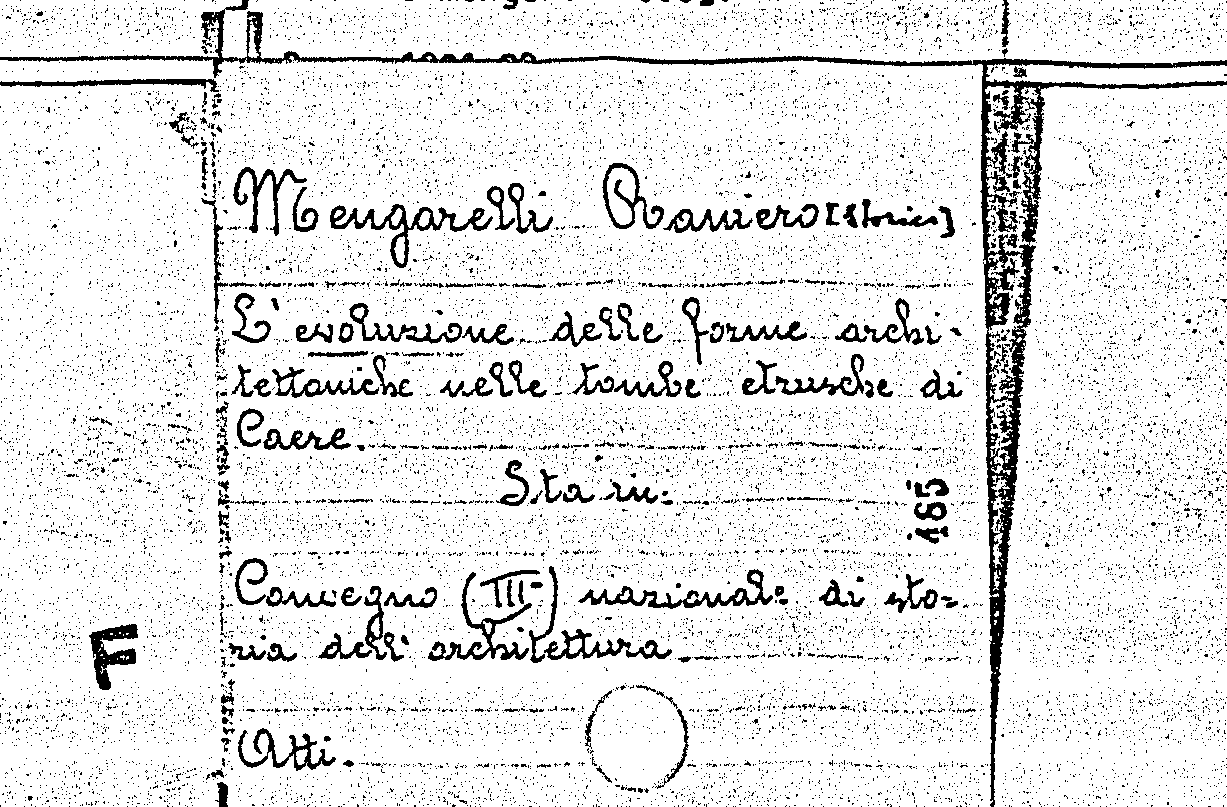 Mengarelli Raniero [storico]
L'evoluzione delle forme archi-
tettoniche nelle tombe etrusche di
Caere.
Sta in:
165
Convegno (III) nazionale di sto-
ria dell'architettura
F
Atti.